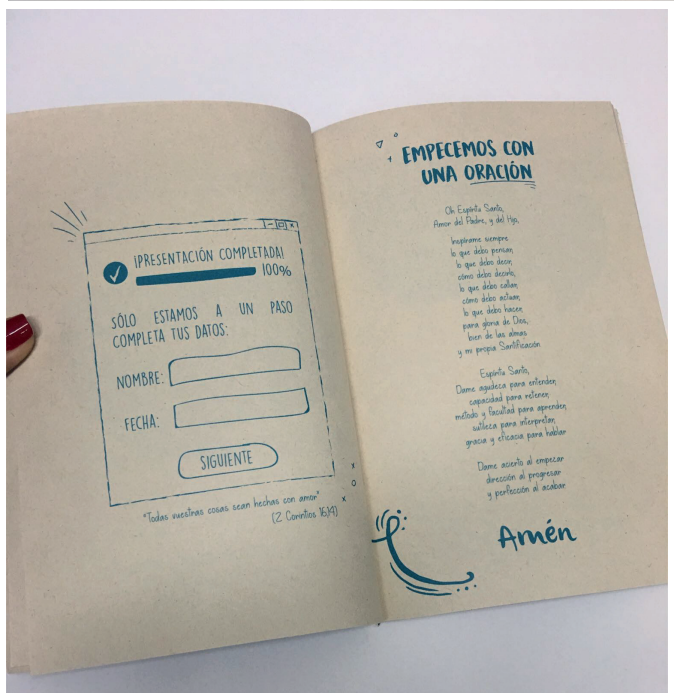 ¡PRESENTACIÓN COMPLETADA!
100%
SÓLO ESTAMOS A UN PASO
COMPLETA TUS DATOS:
NOMBRE:
FECHA:
SIGUIENTE
"Todas vuestras cosas sean hechas con amor"
(2 Corintios 16,14)
EMPECEMOS CON
UNA ORACIÓN
Oh Espíritu Santo,
Amor del Padre, y del Hijo,
Inspírame siempre
lo que debo pensar,
lo que debo decir,
cómo debo decirlo,
lo que debo callar,
cómo debo actuar,
lo que debo hacer,
para gloria de Dios,
bien de las almas
y mi propia Santificación
Espíritu Santo,
Dame agudeza para entender,
capacidad para retener,
método y facultad para aprender,
sutileza para interpretar,
gracia y eficacia para hablar
Dame acierto al empezar
dirección al progresar
y perfección al acabar
Amén